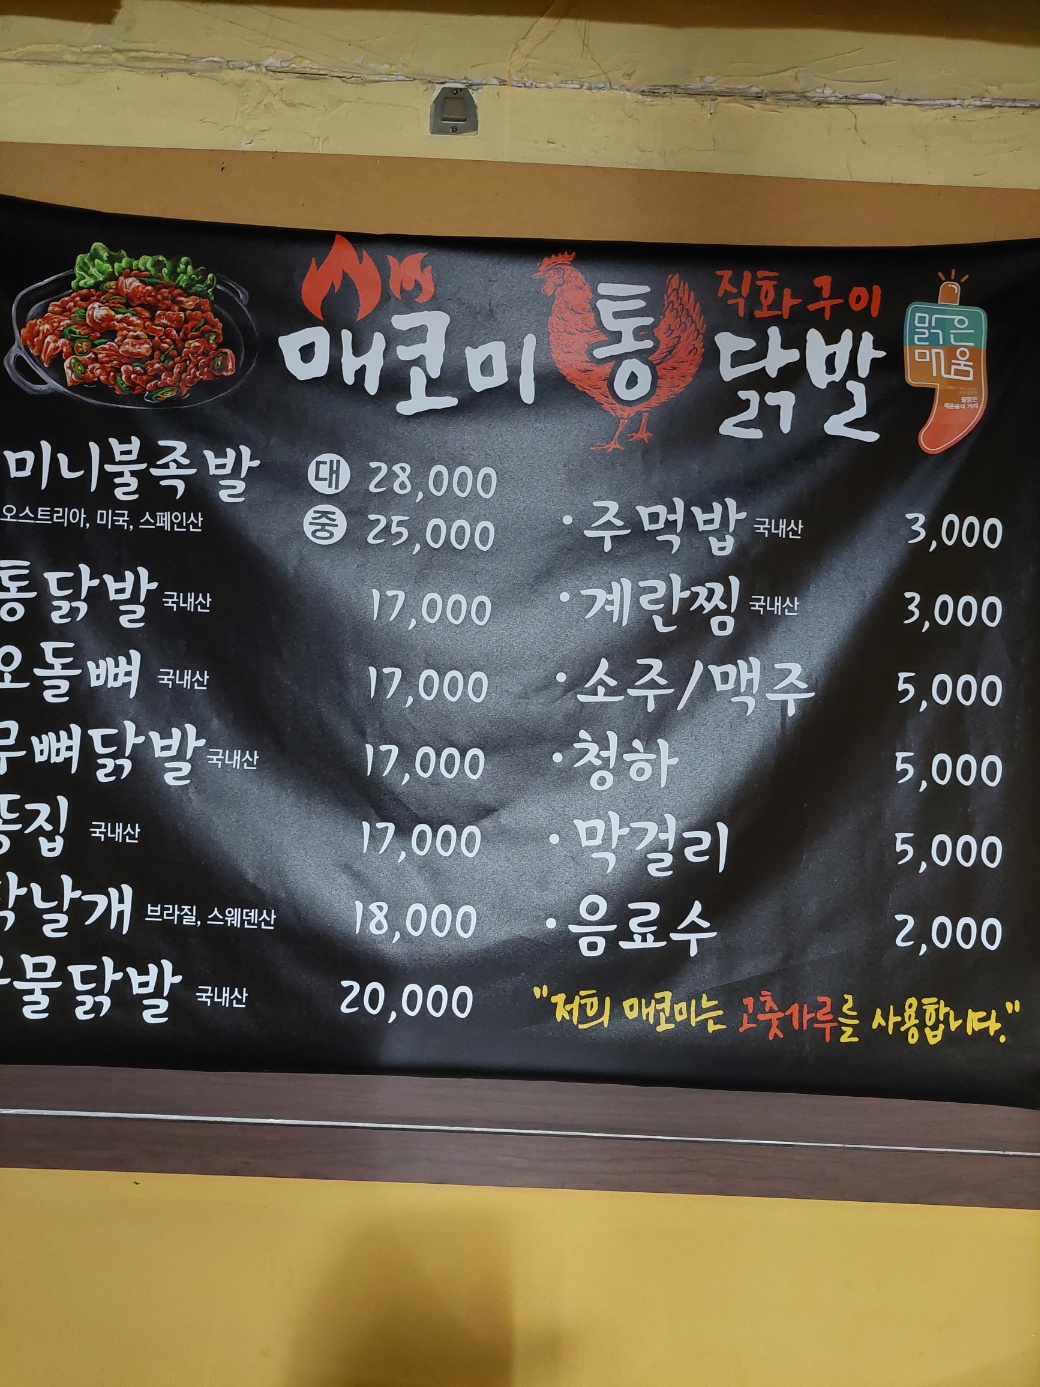 직화구이
매코미 통 닭발
맑은
매움
미니불족발 대 28,000
오스트리아, 미국, 스페인산 중 25,000
통닭발 국내산 17,000
오돌뼈 국내산 17,000
무뼈닭발 국내산 17,000
똥집 국내산 17,000
날개 브라질, 스웨덴산 18,000
물닭발 국내산 20,000
·주먹밥 국내산 3,000
·계란찜 국내산 3,000
·소주/맥주 5,000
·청하 5,000
·막걸리 5,000
·음료수 2,000
"저희 매코미는 고춧가루를 사용합니다."